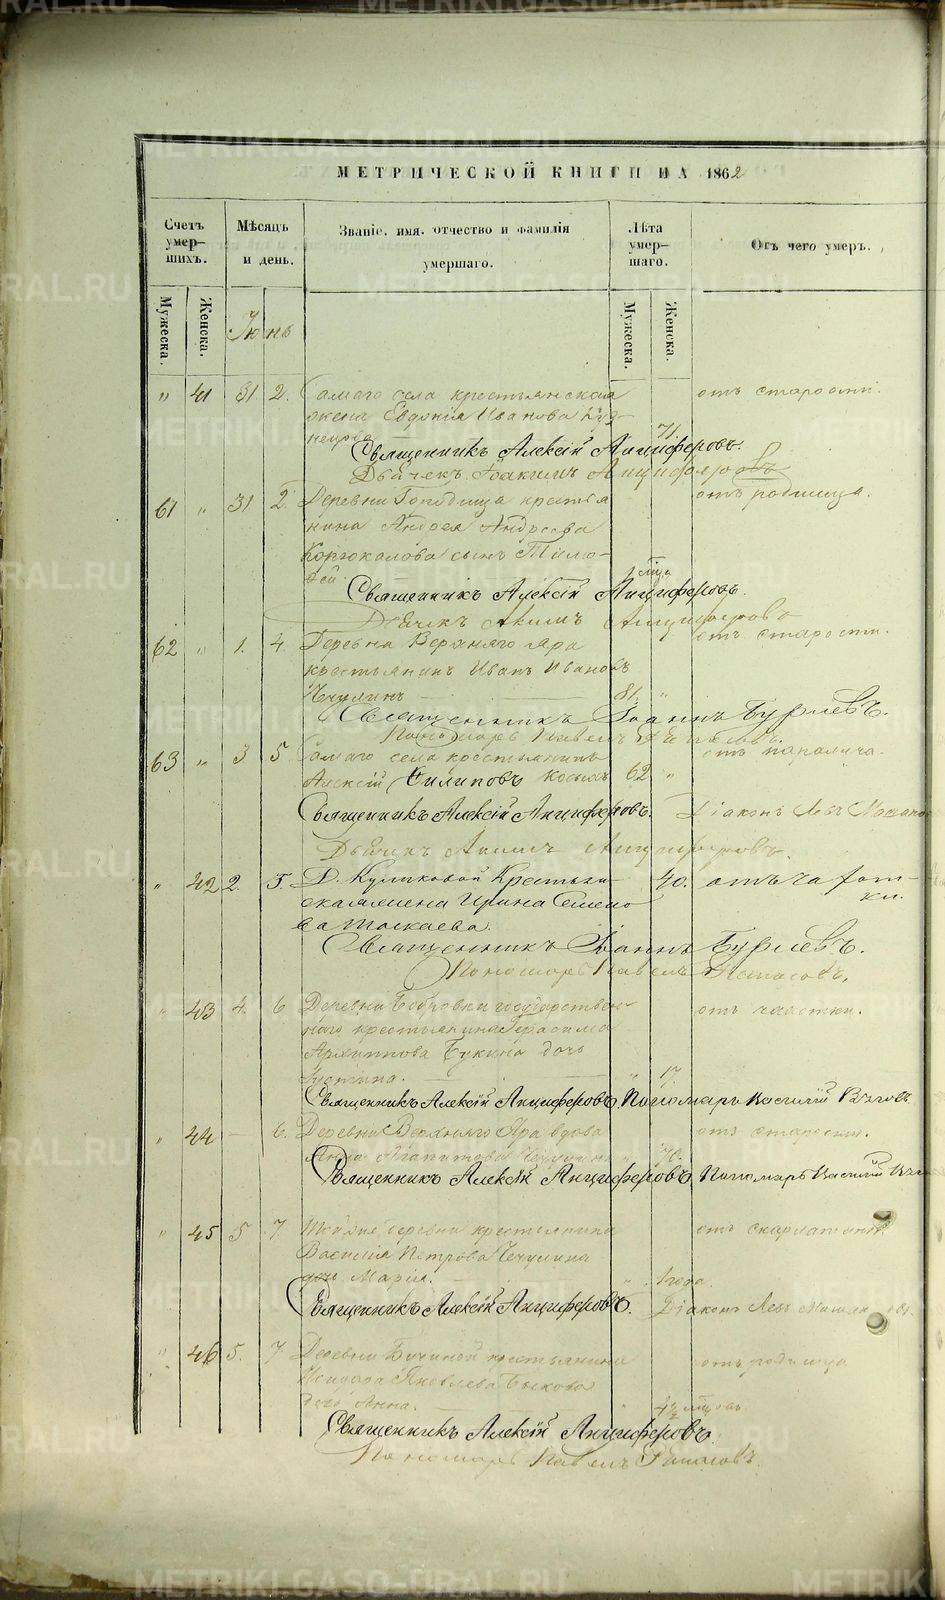 МЕТРИЧЕСКОЙ КНИГИ НА 1862
Счетъ умер-шихъ.
Мѣсяцъ и день.
Званіе, имя, отчество и фамилія умершаго.
Лѣта умер-шаго.
Отъ чего умеръ.
Мужеска.
Женска.
Мужеска.
Женска.
Іюнь
" 41 31 2. Самаго села крестьянская отъ старости.
жена Евдокія Иванова Куз-
нецова 71.
Священникъ Алексій Анциферовъ.
Дьячекъ Анциферовъ
61 " 31 2 Деревни крестья отъ родимца.
нина Андрея Андреева
Коргокалова сынъ Тимо-
фей
Священникъ Алексій Анциферовъ.
Дьячекъ Акимъ Анциферовъ
62 " 1. 4 Деревни Верхняго Яра отъ старости.
крестьянинъ Иванъ Ивановъ
Чечулинъ 81. "
Священникъ Іоаннъ Бурлевъ.
Пономарь Павелъ
63 " 3 5 Самаго села крестьянинъ отъ паралича.
Алексій Филиповъ 62 "
Священникъ Алексій Анциферовъ. Діаконъ Левъ
Дьячекъ Акимъ Анциферовъ.
" 42 2. 5. Д. Куликовой Крестьян- 40. отъ чахот-
ская жена Ирина Семено ки.
ва Шаскаева.
Священникъ Іоаннъ Бурлевъ.
Пономарь Павелъ
" 43 4. 6 Деревни Бобровки государствен- отъ чахотки.
наго крестьянина Герасима
Архиппова Букина дочь
Устина. " 17
Священникъ Алексій Анциферовъ. Пономарь Василій
" 44 — 6. Деревни Верхняго Яра вдова отъ старости.
Анна Агапитова 70.
Священникъ Алексій Анциферовъ. Пономарь Василій
" 45 5 7 деревни крестьянина отъ скарлатины
Василія Петрова Чечулина
дочь Марія. " 1 года.
Священникъ Алексій Анциферовъ. Діаконъ Левъ
" 46 5. 7 Деревни крестьянина отъ родимца
Исидора Яковлева Быкова
дочь Анна. "
Священникъ Алексій Анциферовъ.
Пономарь Павелъ
METRIKI.GASO-URAL.RU